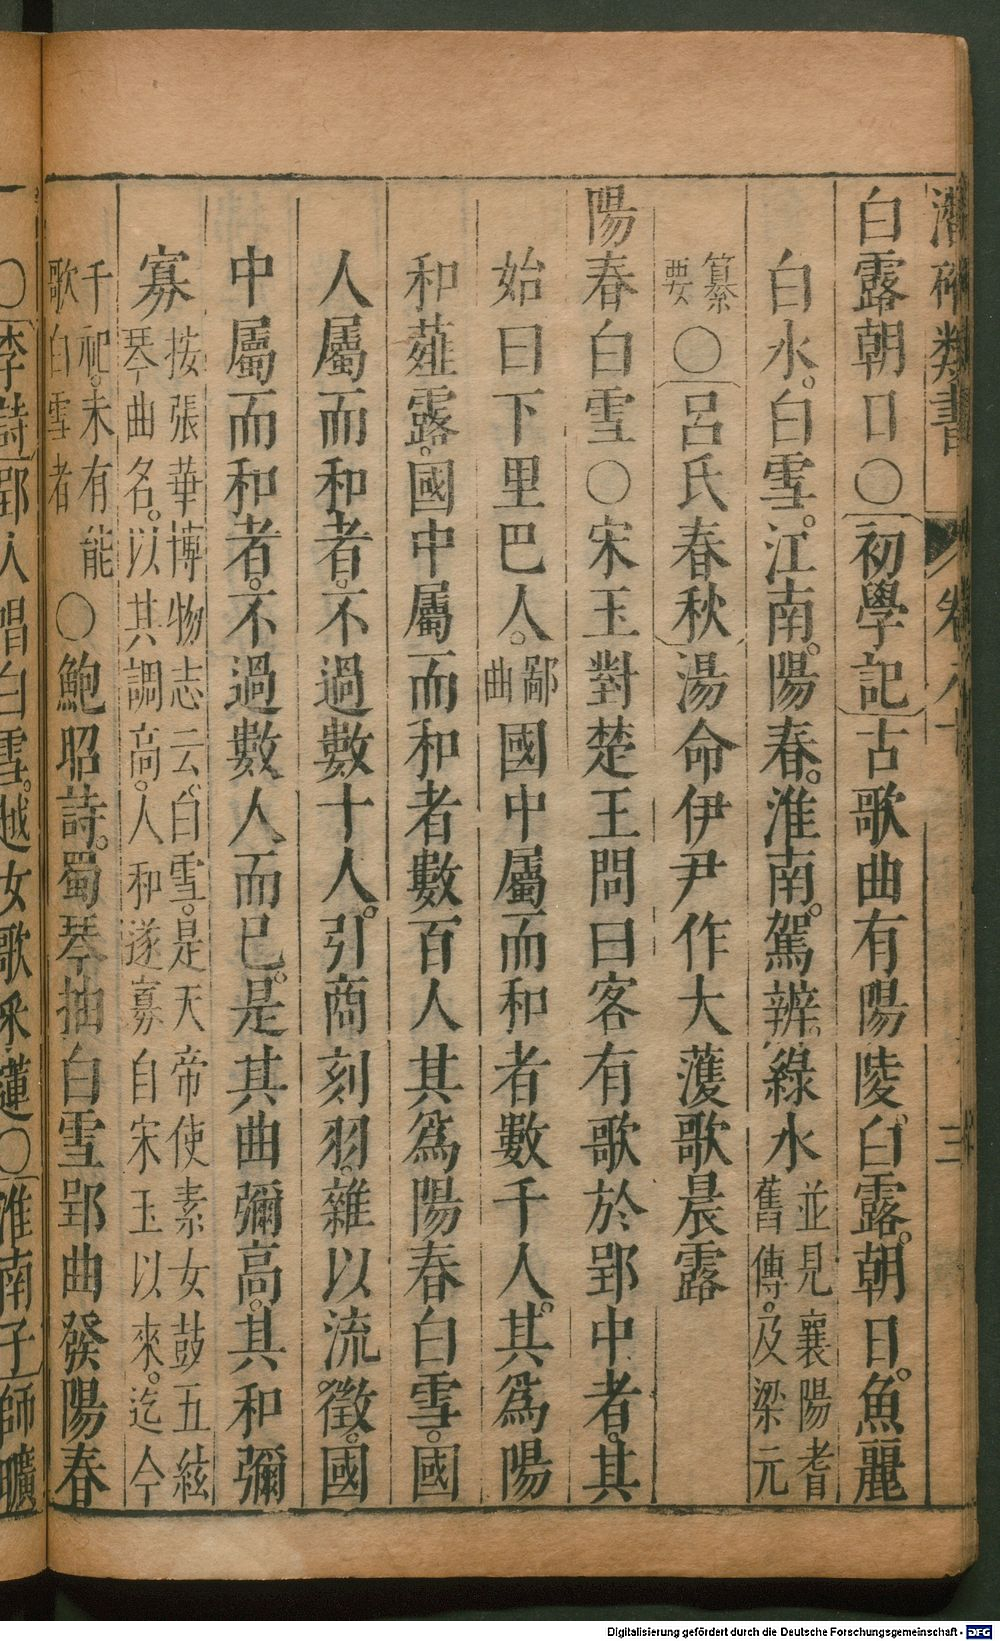 潛確類書 三
白露朝日○初學記古歌曲有陽陵。白露。朝日。魚麗
白水。白雪。江南。陽春。淮南。駕辨。綠水並見襄陽耆舊傳。及梁元
纂要○呂氏春秋湯命伊尹作大濩歌晨露
陽春白雪○宋玉對楚王問曰客有歌於郢中者。其
始曰下里巴人。鄙曲國中屬而和者數千人。其爲陽
和薤露。國中屬而和者數百人其爲陽春白雪。國
人屬而和者。不過數十人。引商刻羽。雜以流徵。國
中屬而和者。不過數人而已。是其曲彌高。其和彌
寡按張華博物志云、白雪。是天帝使素女鼓五絃琴曲名。以其調高。人和遂寡自宋玉以來。迄今
千祀。未有能歌白雪者○鮑昭詩。蜀琴抽白雪郢曲發陽春
○李詩郢人唱白雪。越女歌采蓮○淮南子師曠
Digitalisierung gefördert durch die Deutsche Forschungsgemeinschaft - DFG